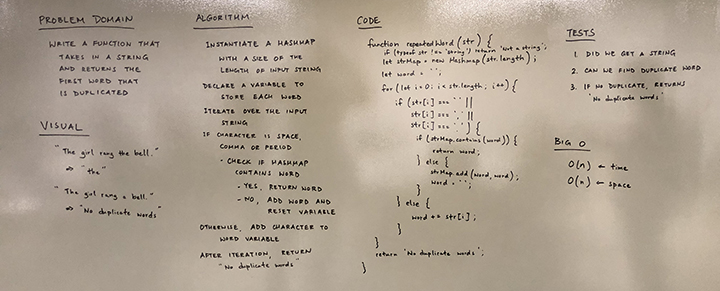 PROBLEM DOMAIN
WRITE A FUNCTION THAT
TAKES IN A STRING
AND RETURNS THE
FIRST WORD THAT
IS DUPLICATED
VISUAL
"The girl rang the bell."
=> "the"
"The girl rang a bell."
=> "No duplicate words"
ALGORITHM
INSTANTIATE A HASHMAP
WITH A SIZE OF THE
LENGTH OF INPUT STRING
DECLARE A VARIABLE TO
STORE EACH WORD
ITERATE OVER THE INPUT
STRING
IF CHARACTER IS SPACE,
COMMA OR PERIOD
- CHECK IF HASHMAP
CONTAINS WORD
- YES, RETURN WORD
- NO, ADD WORD AND
RESET VARIABLE
OTHERWISE, ADD CHARACTER TO
WORD VARIABLE
AFTER ITERATION, RETURN
"No duplicate words"
CODE
function repeatedWord (str) {
if (typeof str !== 'string') return 'Not a string';
let strMap = new Hashmap (str.length);
let word = '';
for (let i=0; i< str.length; i++) {
if (str[i] === ' ' ||
str[i] === ||
str[i] === ) {
if (strMap.contains(word)) {
return word;
} else {
strMap.add(word, word);
word = '';
}
} else {
word += str[i];
}
}
return 'No duplicate words';
}
TESTS
1. DID WE GET A STRING
2. CAN WE FIND DUPLICATE WORD
3. IF NO DUPLICATE, RETURNS
"No duplicate words"
BIG O
O(n) ← time
O(n) ← space